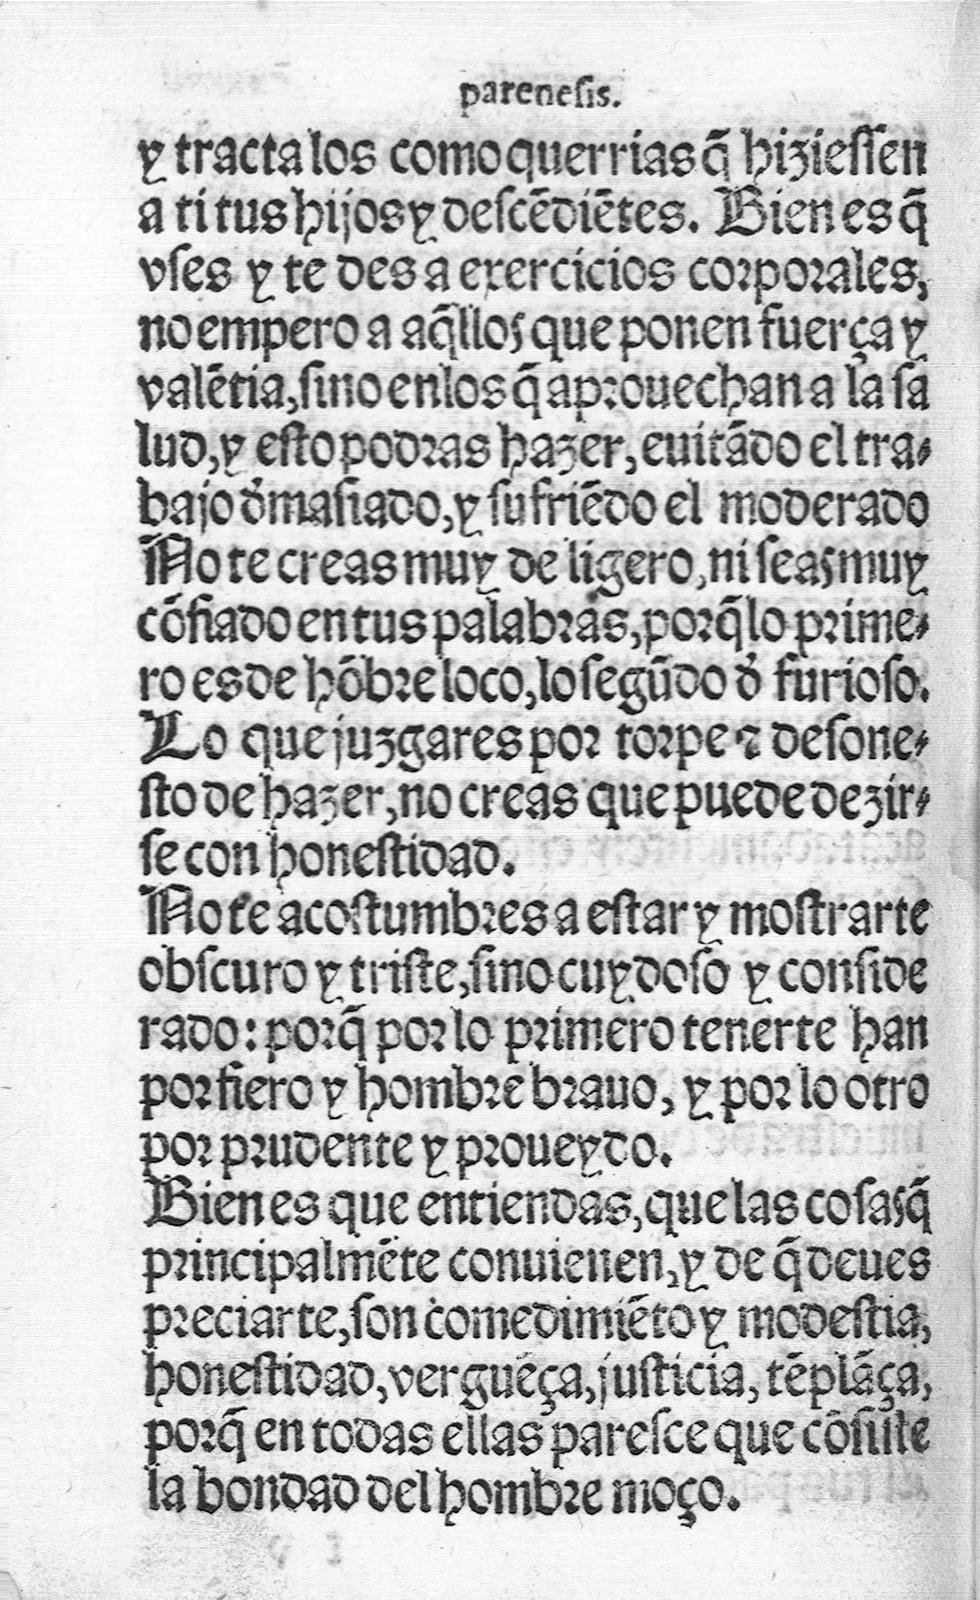 parenesis.
y tracta los como querrias q̃ hizieſſen
a ti tus hijos y deſcẽdiẽtes. Bien es q̃
vſes y te des a exercicios corporales,
no empero a aq̃llos que ponen fuerça y
valẽtia, ſino en los q̃ aprouechan a la ſa
lud, y eſto podras hazer, euitãdo el tra⸗
bajo d̓maſiado, y sufriẽdo el moderado
No te creas muy de ligero, ni ſeas muy
cõfiado en tus palabras, porq̃ lo prime⸗
ro es de hõbre loco, lo ſegũdo d̓ furioſo.
Lo que juzgares por torpe ⁊ deſone⸗
ſto de hazer, no creas que puede dezir⸗
ſe con honeſtidad.
No te acoſtumbres a eſtar y moſtrarte
obſcuro y triſte, ſino cuydoſo y conſide
rado: porq̃ por lo primero tenerte han
por fiero y hombre brauo, y por lo otro
por prudente y proueydo.
Bien es que entiendas, que las coſas q̃
principalmẽte conuienen, y de q̃ deues
preciarte, ſon comedimiẽto y modeſtia,
honeſtidad, verguẽça, juſticia, tẽplãça,
porq̃ en todas ellas pareſce que cõſiſte
la bondad del hombre moço.